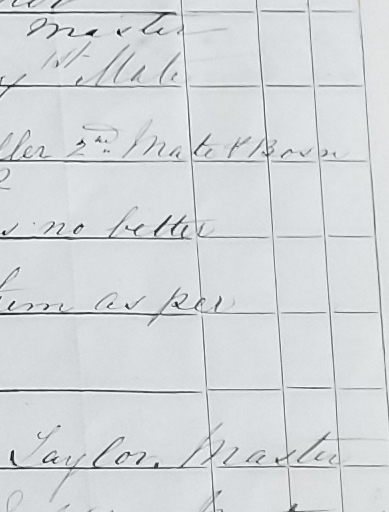 Master
1st Mate
ller 2nd Mate & Bosn
s no better
tem as per
Taylor. Master